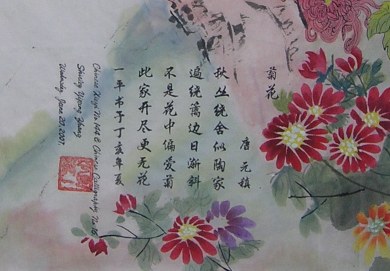 菊花
唐 元稹
秋丛绕舍似陶家
遍绕篱边日渐斜
不是花中偏爱菊
此花开尽更无花
一平书于丁亥年夏
Chinese Xieyi No. & Chinese Calligraphy No.
Shirley Yiping Zhang
Wednesday, June 20, 2007.